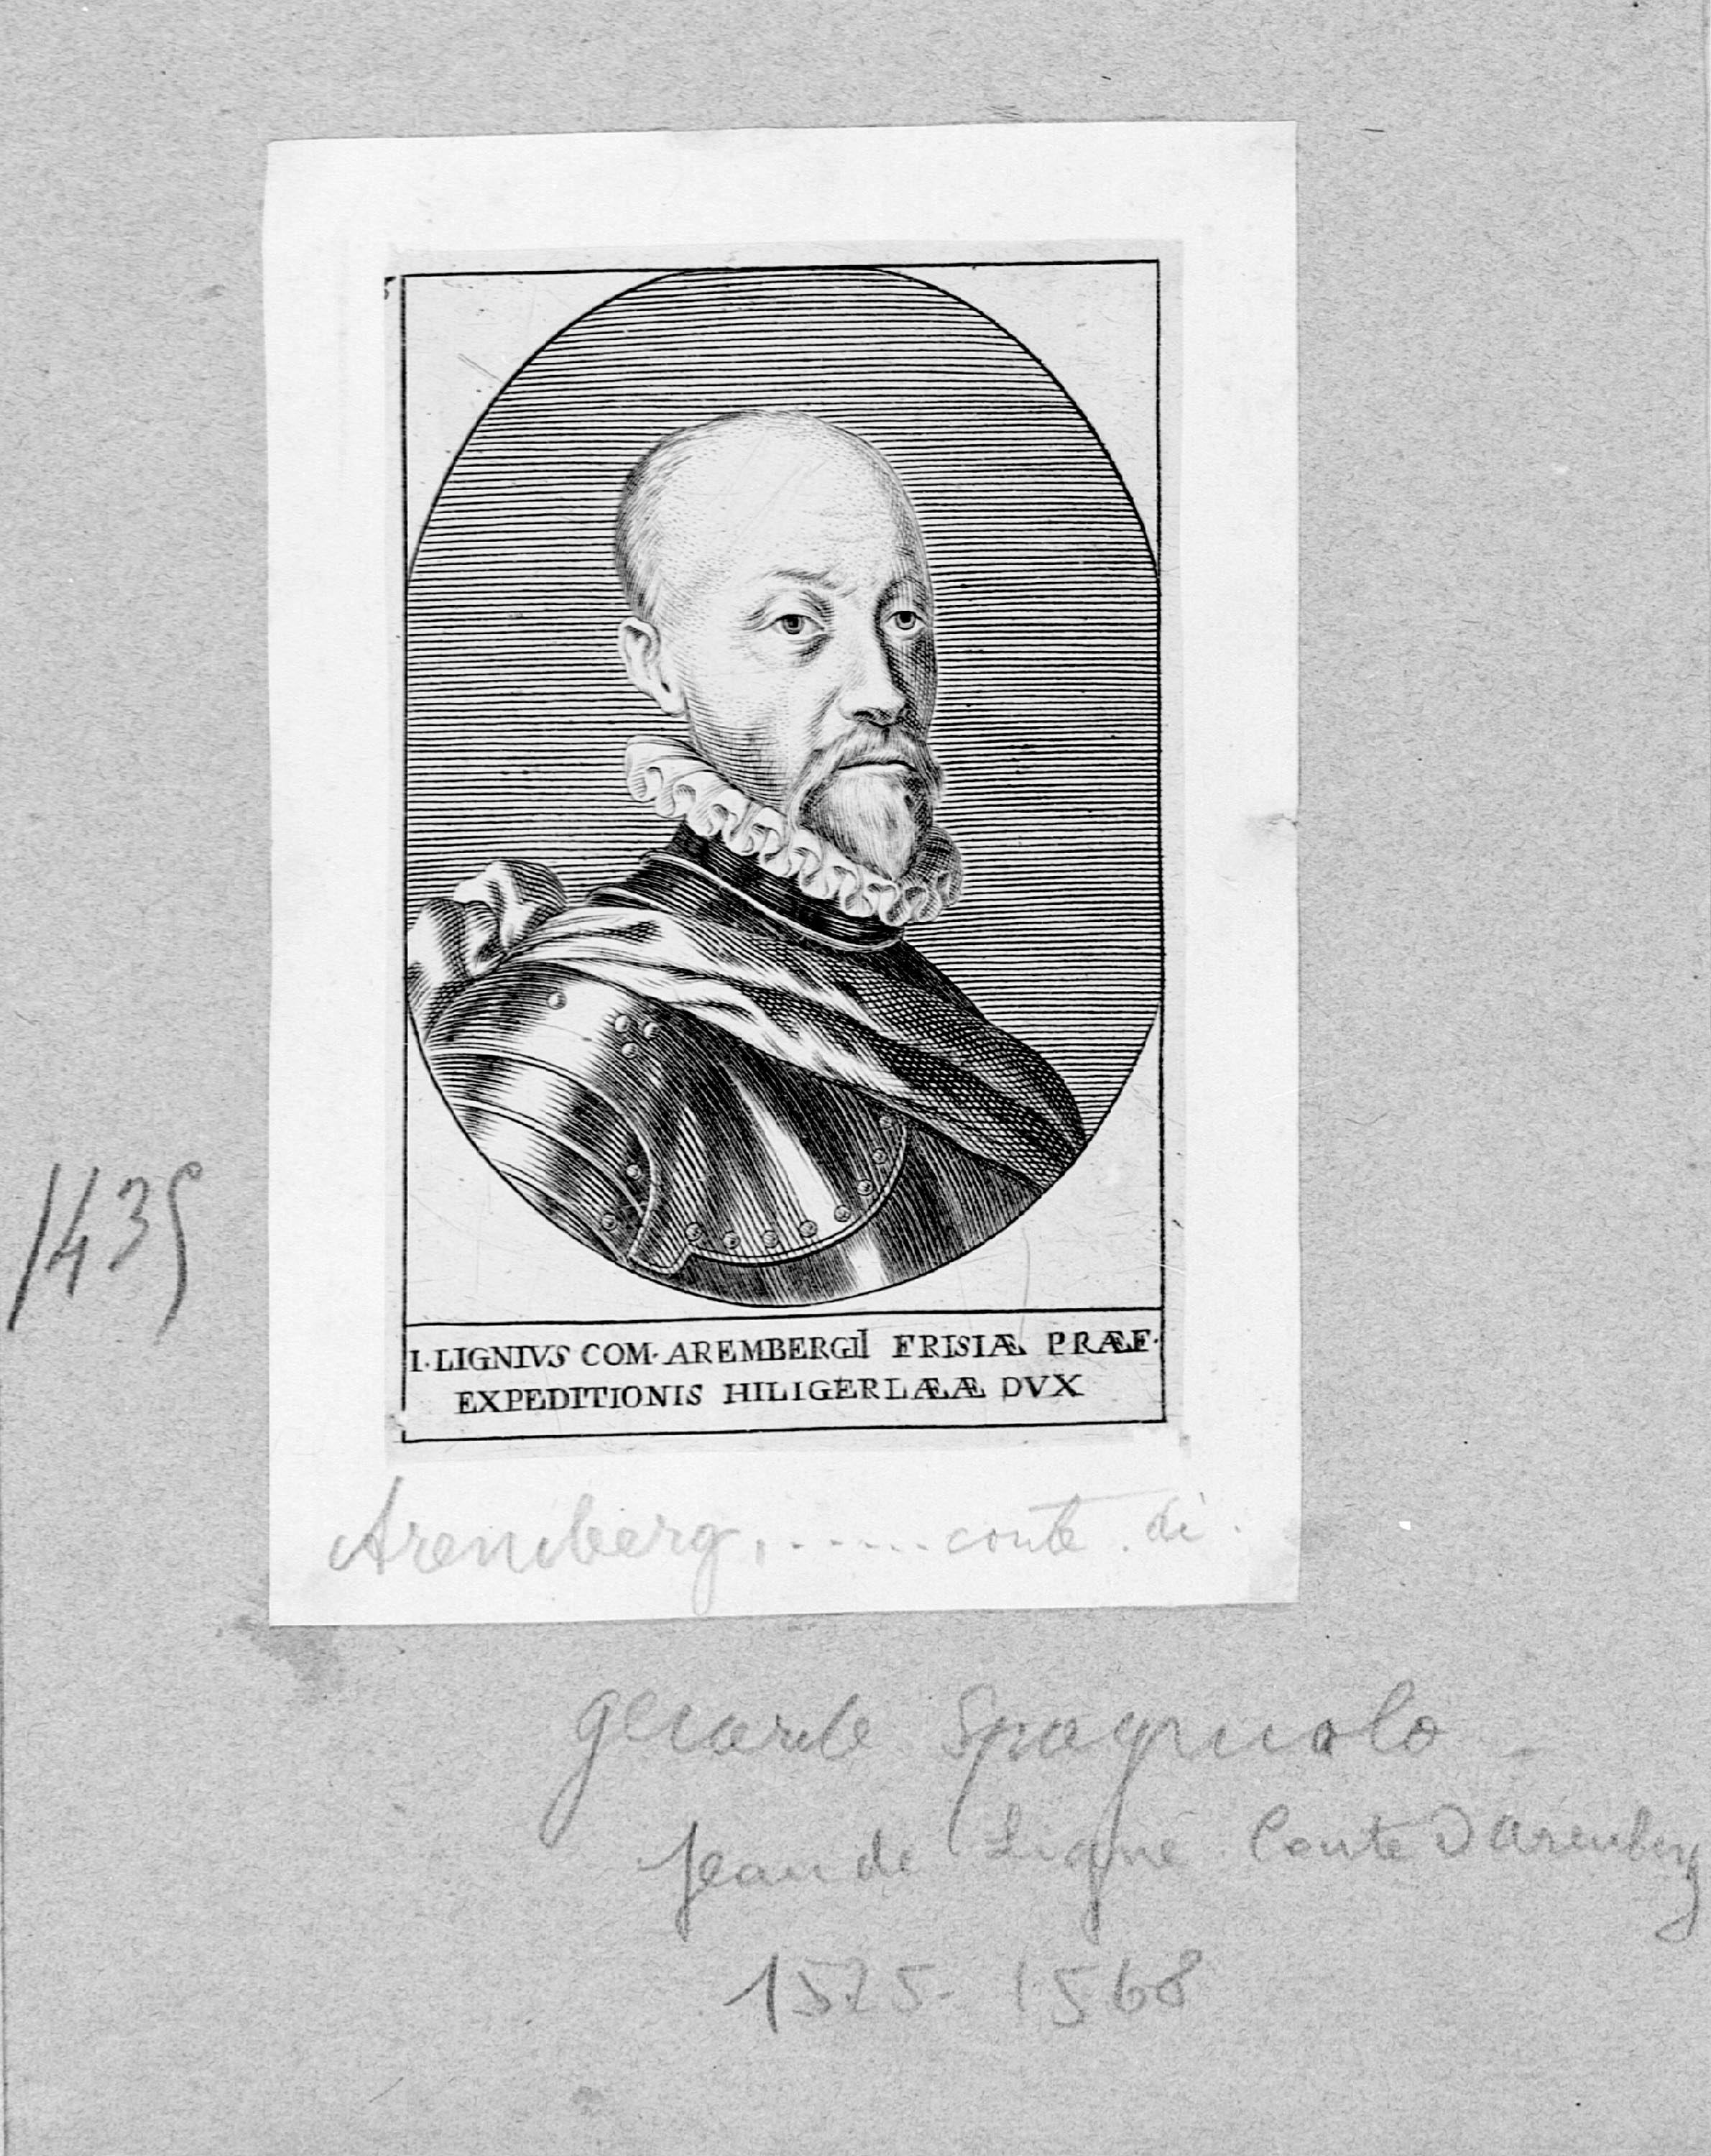 I. LIGNIVS COM. AREMBERGII FRISIÆ PRÆF.
EXPEDITIONIS HILIGERLÆÆ DVX
Aremberg, ...... conte di.
1435
Spagnuolo
Jean de Ligne Conte D Aremberg
1525 - 1568